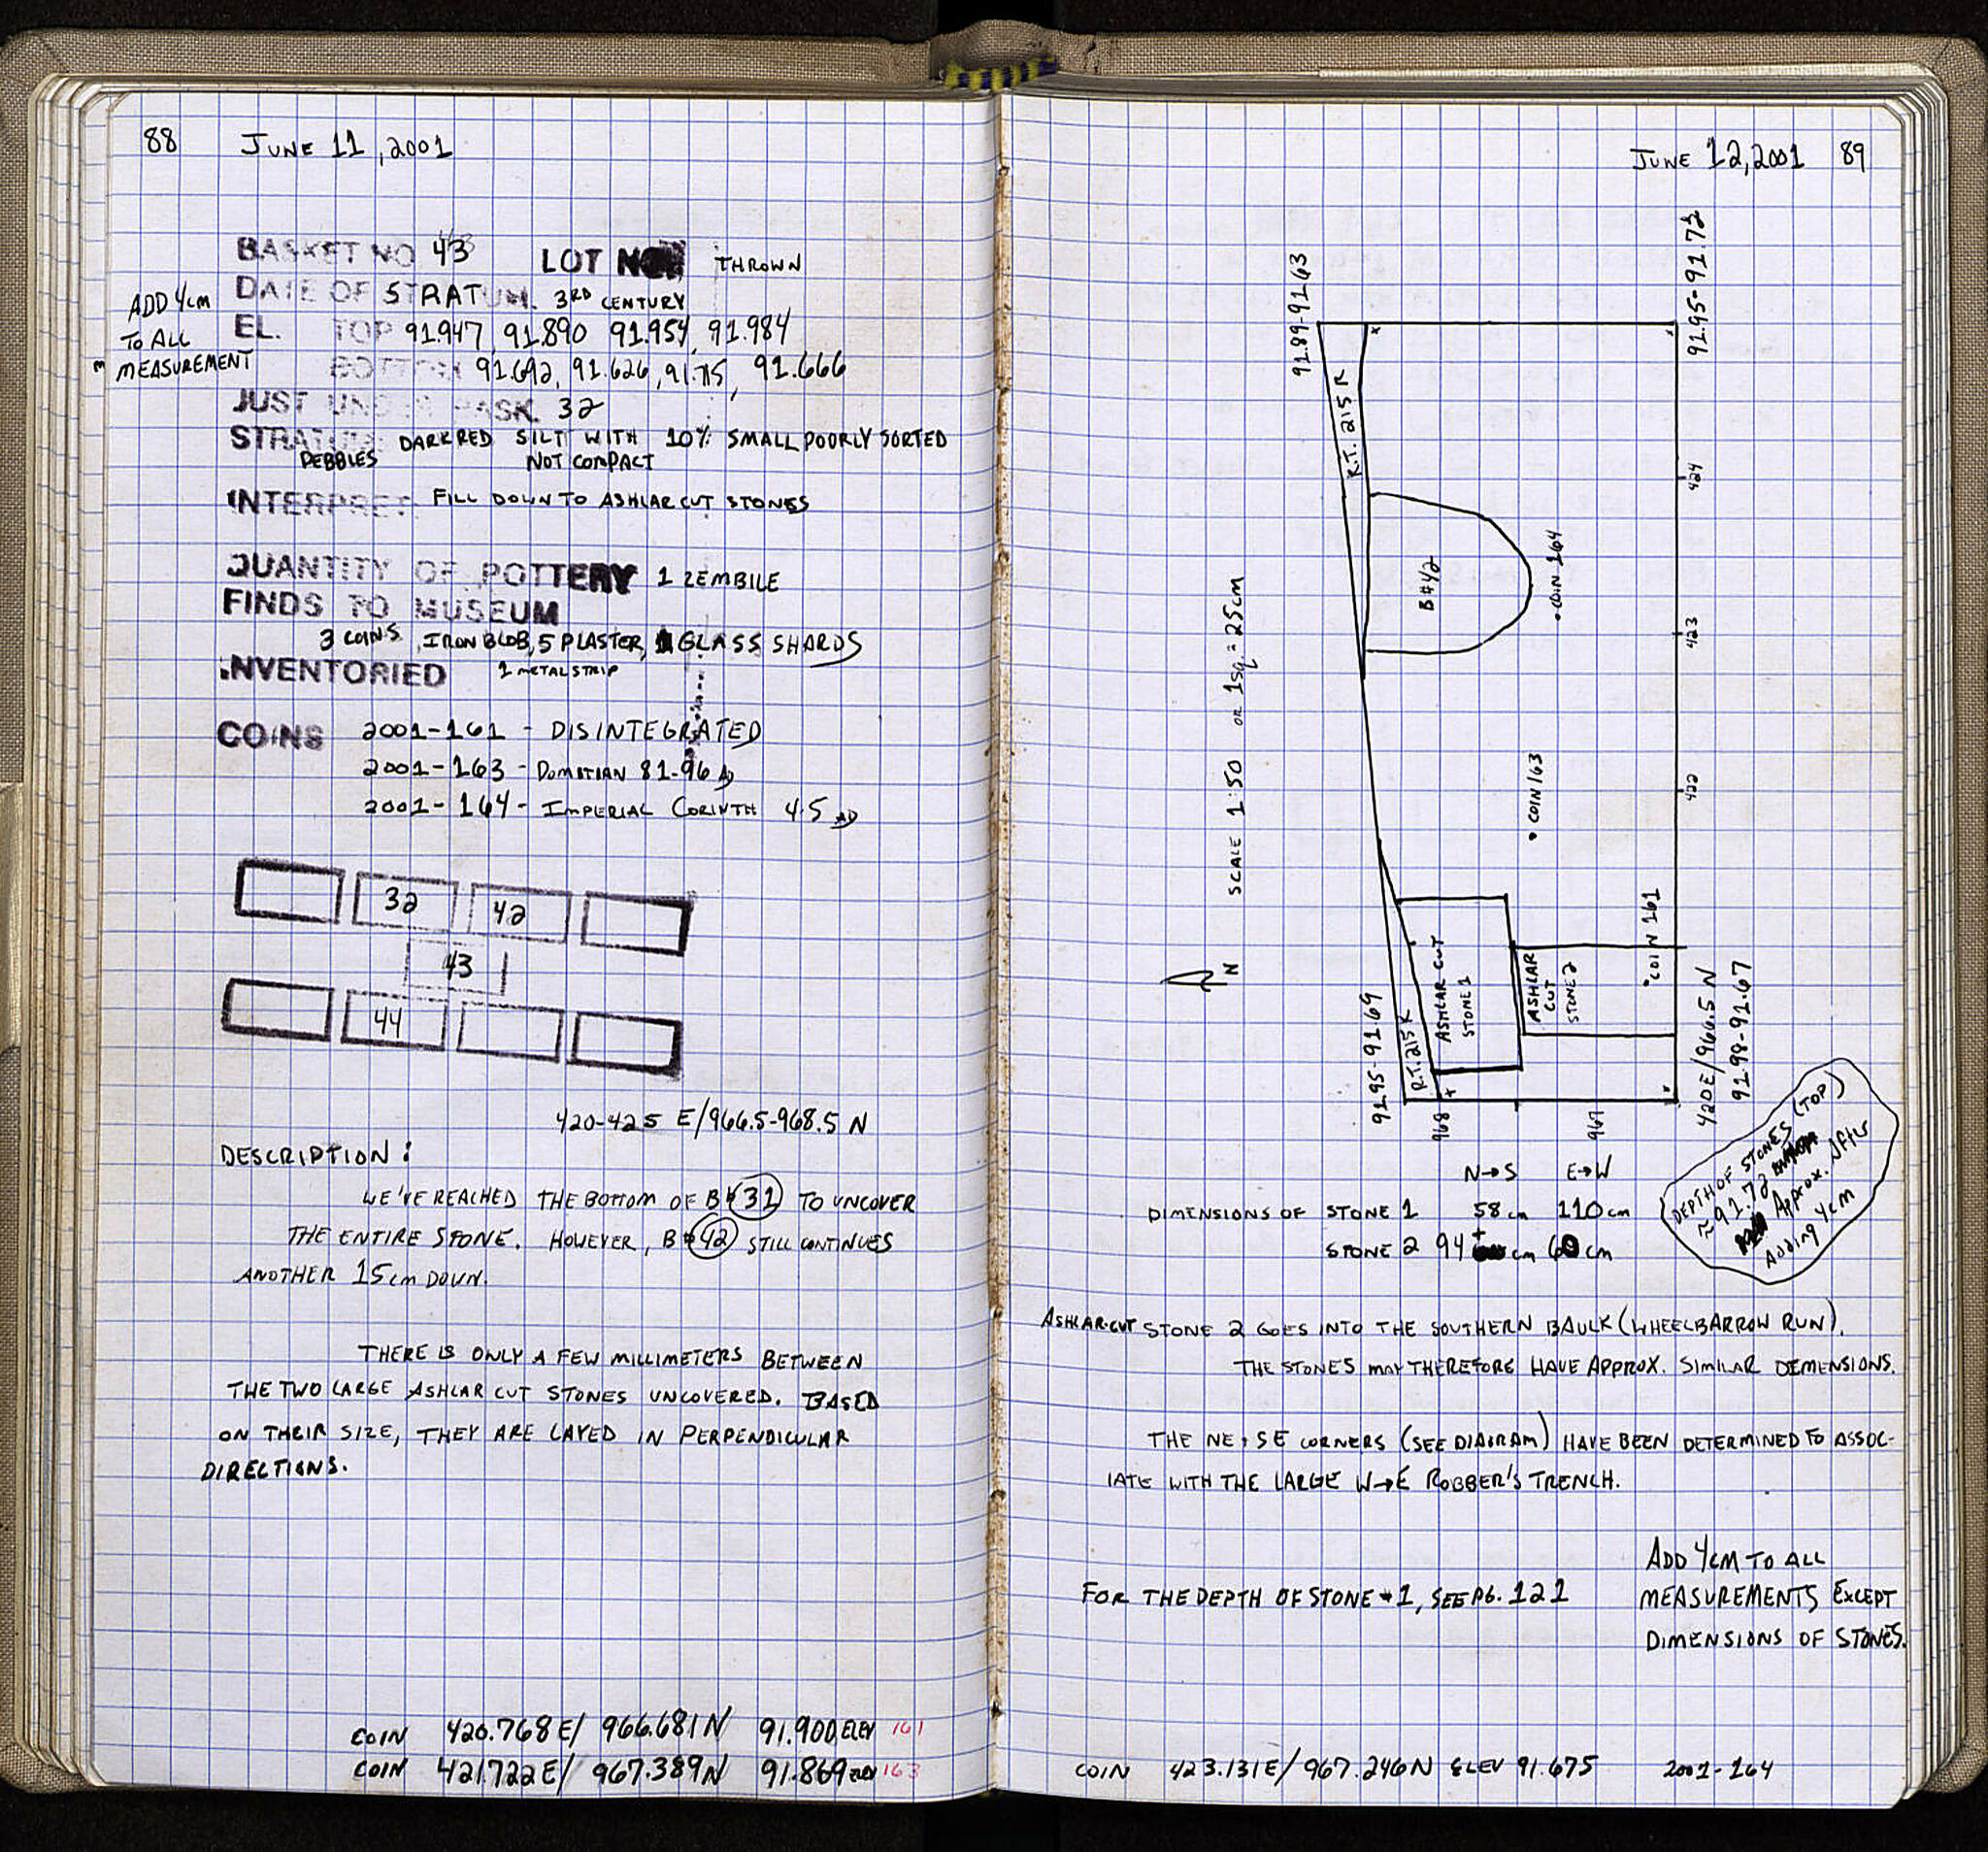 88 JUNE 11, 2001
BASKET NO 43 LOT NO THROWN
DATE OF STRATUM. 3RD CENTURY
EL. TOP 91.947, 91.890 91.954, 91.984
BOTTOM 91.692, 91.626, 91.715, 91.666
ADD 4CM
TO ALL
MEASUREMENT
JUST UNDER BASK. 32
STRATUM: DARK RED SILT WITH 10% SMALL POORLY SORTED
PEBBLES NOT COMPACT
INTERPRET: FILL DOWN TO ASHLAR CUT STONES
QUANTITY OF POTTERY 1 ZEMBILE
FINDS TO MUSEUM
3 COINS, IRON BLOB, 5 PLASTER, GLASS SHARDS
INVENTORIED 1 METAL STRIP
COINS 2001-161 - DISINTEGRATED
2001-163 - DOMITIAN 81-96 AD
2001-164 - IMPERIAL CORINTH 4-5 AD
32 42
43
44
420-425 E/966.5-968.5 N
DESCRIPTION:
WE'VE REACHED THE BOTTOM OF B# 31 TO UNCOVER
THE ENTIRE STONE. HOWEVER, B# 42 STILL CONTINUES
ANOTHER 15cm DOWN.
THERE IS ONLY A FEW MILLIMETERS BETWEEN
THE TWO LARGE ASHLAR CUT STONES UNCOVERED. BASED
ON THEIR SIZE, THEY ARE LAYED IN PERPENDICULAR
DIRECTIONS.
COIN 420.768 E/ 966.681 N 91.900 ELEV 161
COIN 421.722 E/ 967.389 N 91.869 ELEV 163
JUNE 12, 2001 89
91.89-91.63
91.95-91.72
R.T. 215 R
424
B#42
COIN 164
423
SCALE 1:50 or 1sq.=25cm
422
COIN 163
COIN 161
N
ASHLAR CUT
STONE 1
ASHLAR
CUT
STONE 2
R.T. 215 R
91.95-91.69
420E/966.5 N
91.98-91.67
968
967
DEPTH OF STONES (TOP)
≈91.72
Approx. After
Adding 4cm
N→S E→W
DIMENSIONS OF STONE 1 58 cm 110 cm
STONE 2 94+ cm 60 cm
ASHLAR-CUT STONE 2 GOES INTO THE SOUTHERN BAULK (WHEELBARROW RUN).
THE STONES MAY THEREFORE HAVE APPROX. SIMILAR DEMENSIONS.
THE NE + SE CORNERS (SEE DIAGRAM) HAVE BEEN DETERMINED TO ASSOC-
IATE WITH THE LARGE W→E ROBBER'S TRENCH.
FOR THE DEPTH OF STONE #1, SEE PG. 121
ADD 4CM TO ALL
MEASUREMENTS EXCEPT
DIMENSIONS OF STONES.
COIN 423.131E/967.246N ELEV 91.675 2001-164